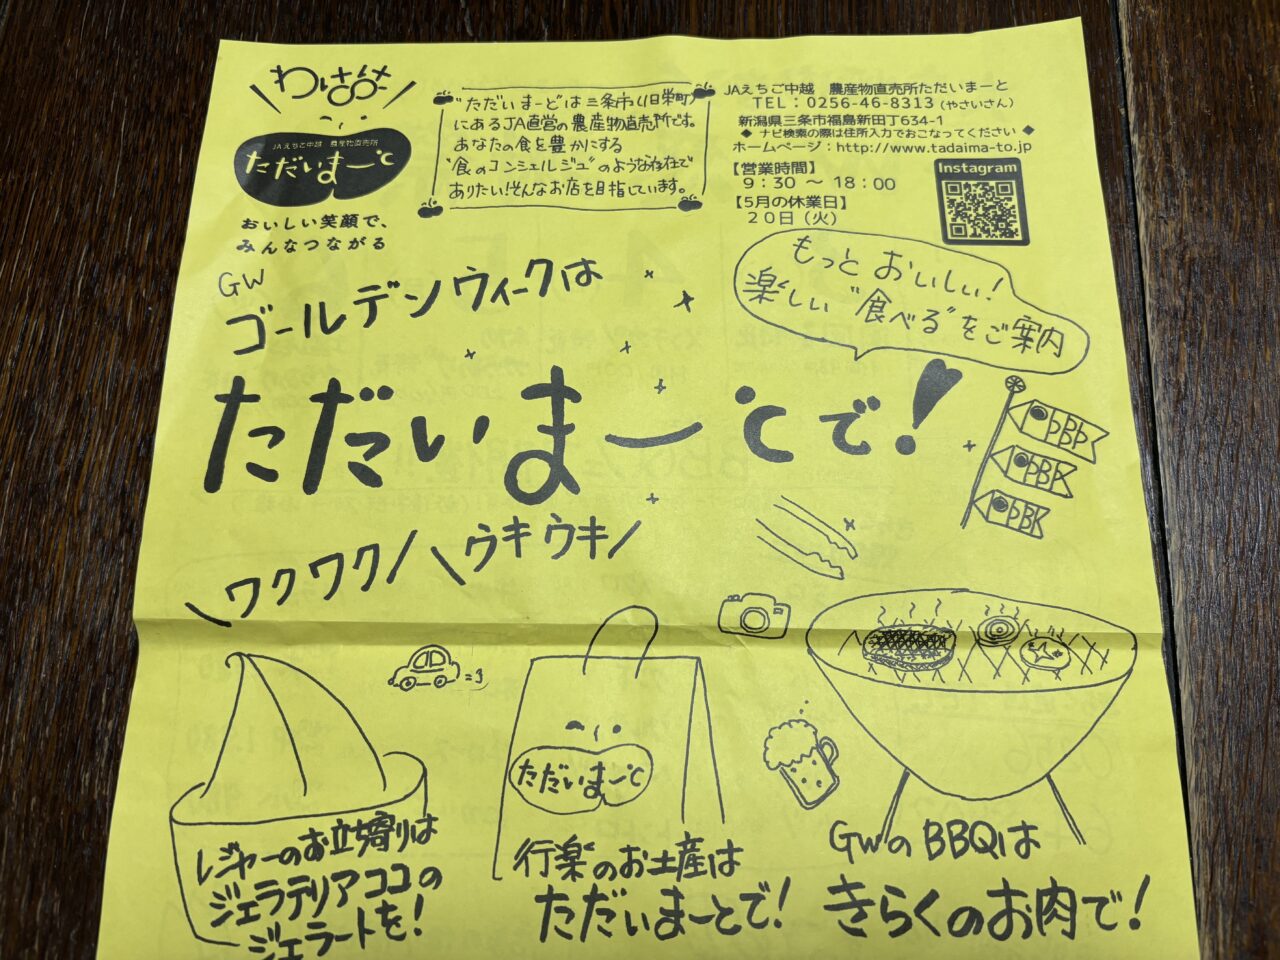 わけあって
JAえちご中越 農産物直売所
ただいまーと
おいしい笑顔で、
みんなつながる
"ただいまーと"は三条市(旧栄町)
にあるJA直営の農産物直売所です。
あなたの食を豊かにする
"食のコンシェルジュ"のような存在で
ありたい!そんなお店を目指しています。
JAえちご中越 農産物直売所ただいまーと
TEL:0256-46-8313(やさいさん)
新潟県三条市福島新田丁634-1
◆ ナビ検索の際は住所入力でおこなってください ◆
ホームページ:http://www.tadaima-to.jp
【営業時間】
9:30 ~ 18:00
【5月の休業日】
20日(火)
Instagram
もっと おいしい!
楽しい"食べる"をご案内
GW
ゴールデンウィークは
ただいまーとで!
ワクワク
ウキウキ
レジャーのお立ち寄りは
ジェラテリアココの
ジェラートを!
ただいまーと
行楽のお土産は
ただいまーとで!
GWのBBQは
きらくのお肉で!